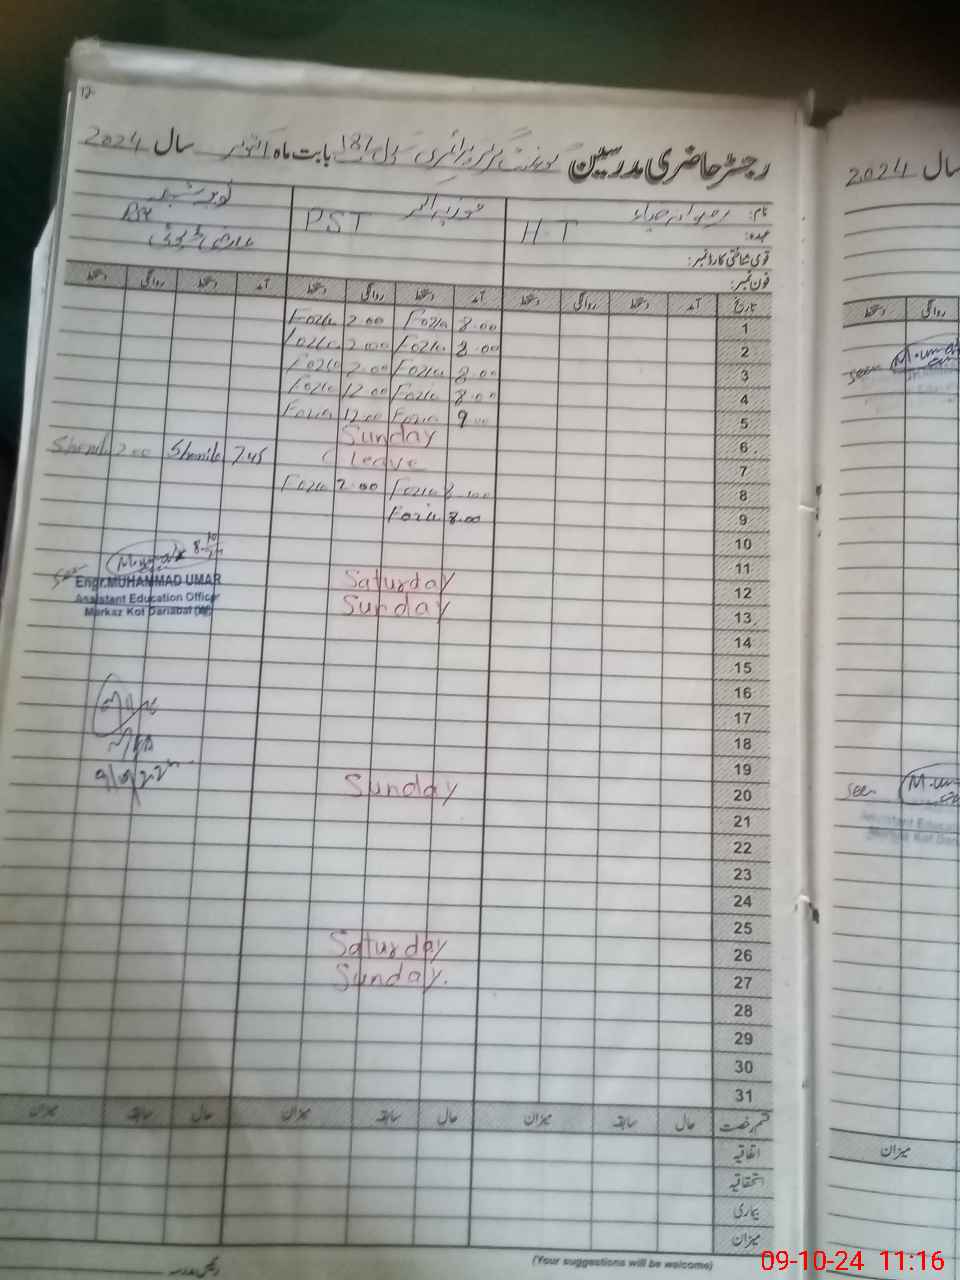 12
رجسٹر حاضری مدرسین گورنمنٹ گرلز پرائمری سکول 187 بابت ماہ اکتوبر سال 2024
نام:
عہدہ: H.T PST PST
قومی شناختی کارڈ نمبر:
فون نمبر:
تاریخ آمد دستخط روانگی دستخط آمد دستخط روانگی دستخط آمد دستخط روانگی دستخط
1 8.00 Fozia 2.00 Fozia
2 8.00 Fozia 2.00 Fozia
3 8.00 Fozia 2.00 Fozia
4 8.00 Fozia 12.00 Fozia
5 9.00 Fozia 12.00 Fozia
6 Sunday
7 leave 7.45 2.00
8 8.00 Fozia 2.00 Fozia
9 8.00 Fozia
10
11
12 Saturday
13 Sunday
14
15
16
17
18
19
20 Sunday
21
22
23
24
25
26 Saturday
27 Sunday.
28
29
30
31
Engr.MUHAMMAD UMAR
Assistant Education Officer
Markaz Kot Dariabal (W)
قسم رخصت حال سابقہ میزان حال سابقہ میزان حال سابقہ میزان
اتفاقیہ
استحقاقیہ
بیماری
میزان
(Your suggestions will be welcome)
رئیس مدرسہ
سال 2024
دستخط روانگی
seen
seen M.umar
Assistant Educa
Markaz Kot Daria
میزان
09-10-24 11:16